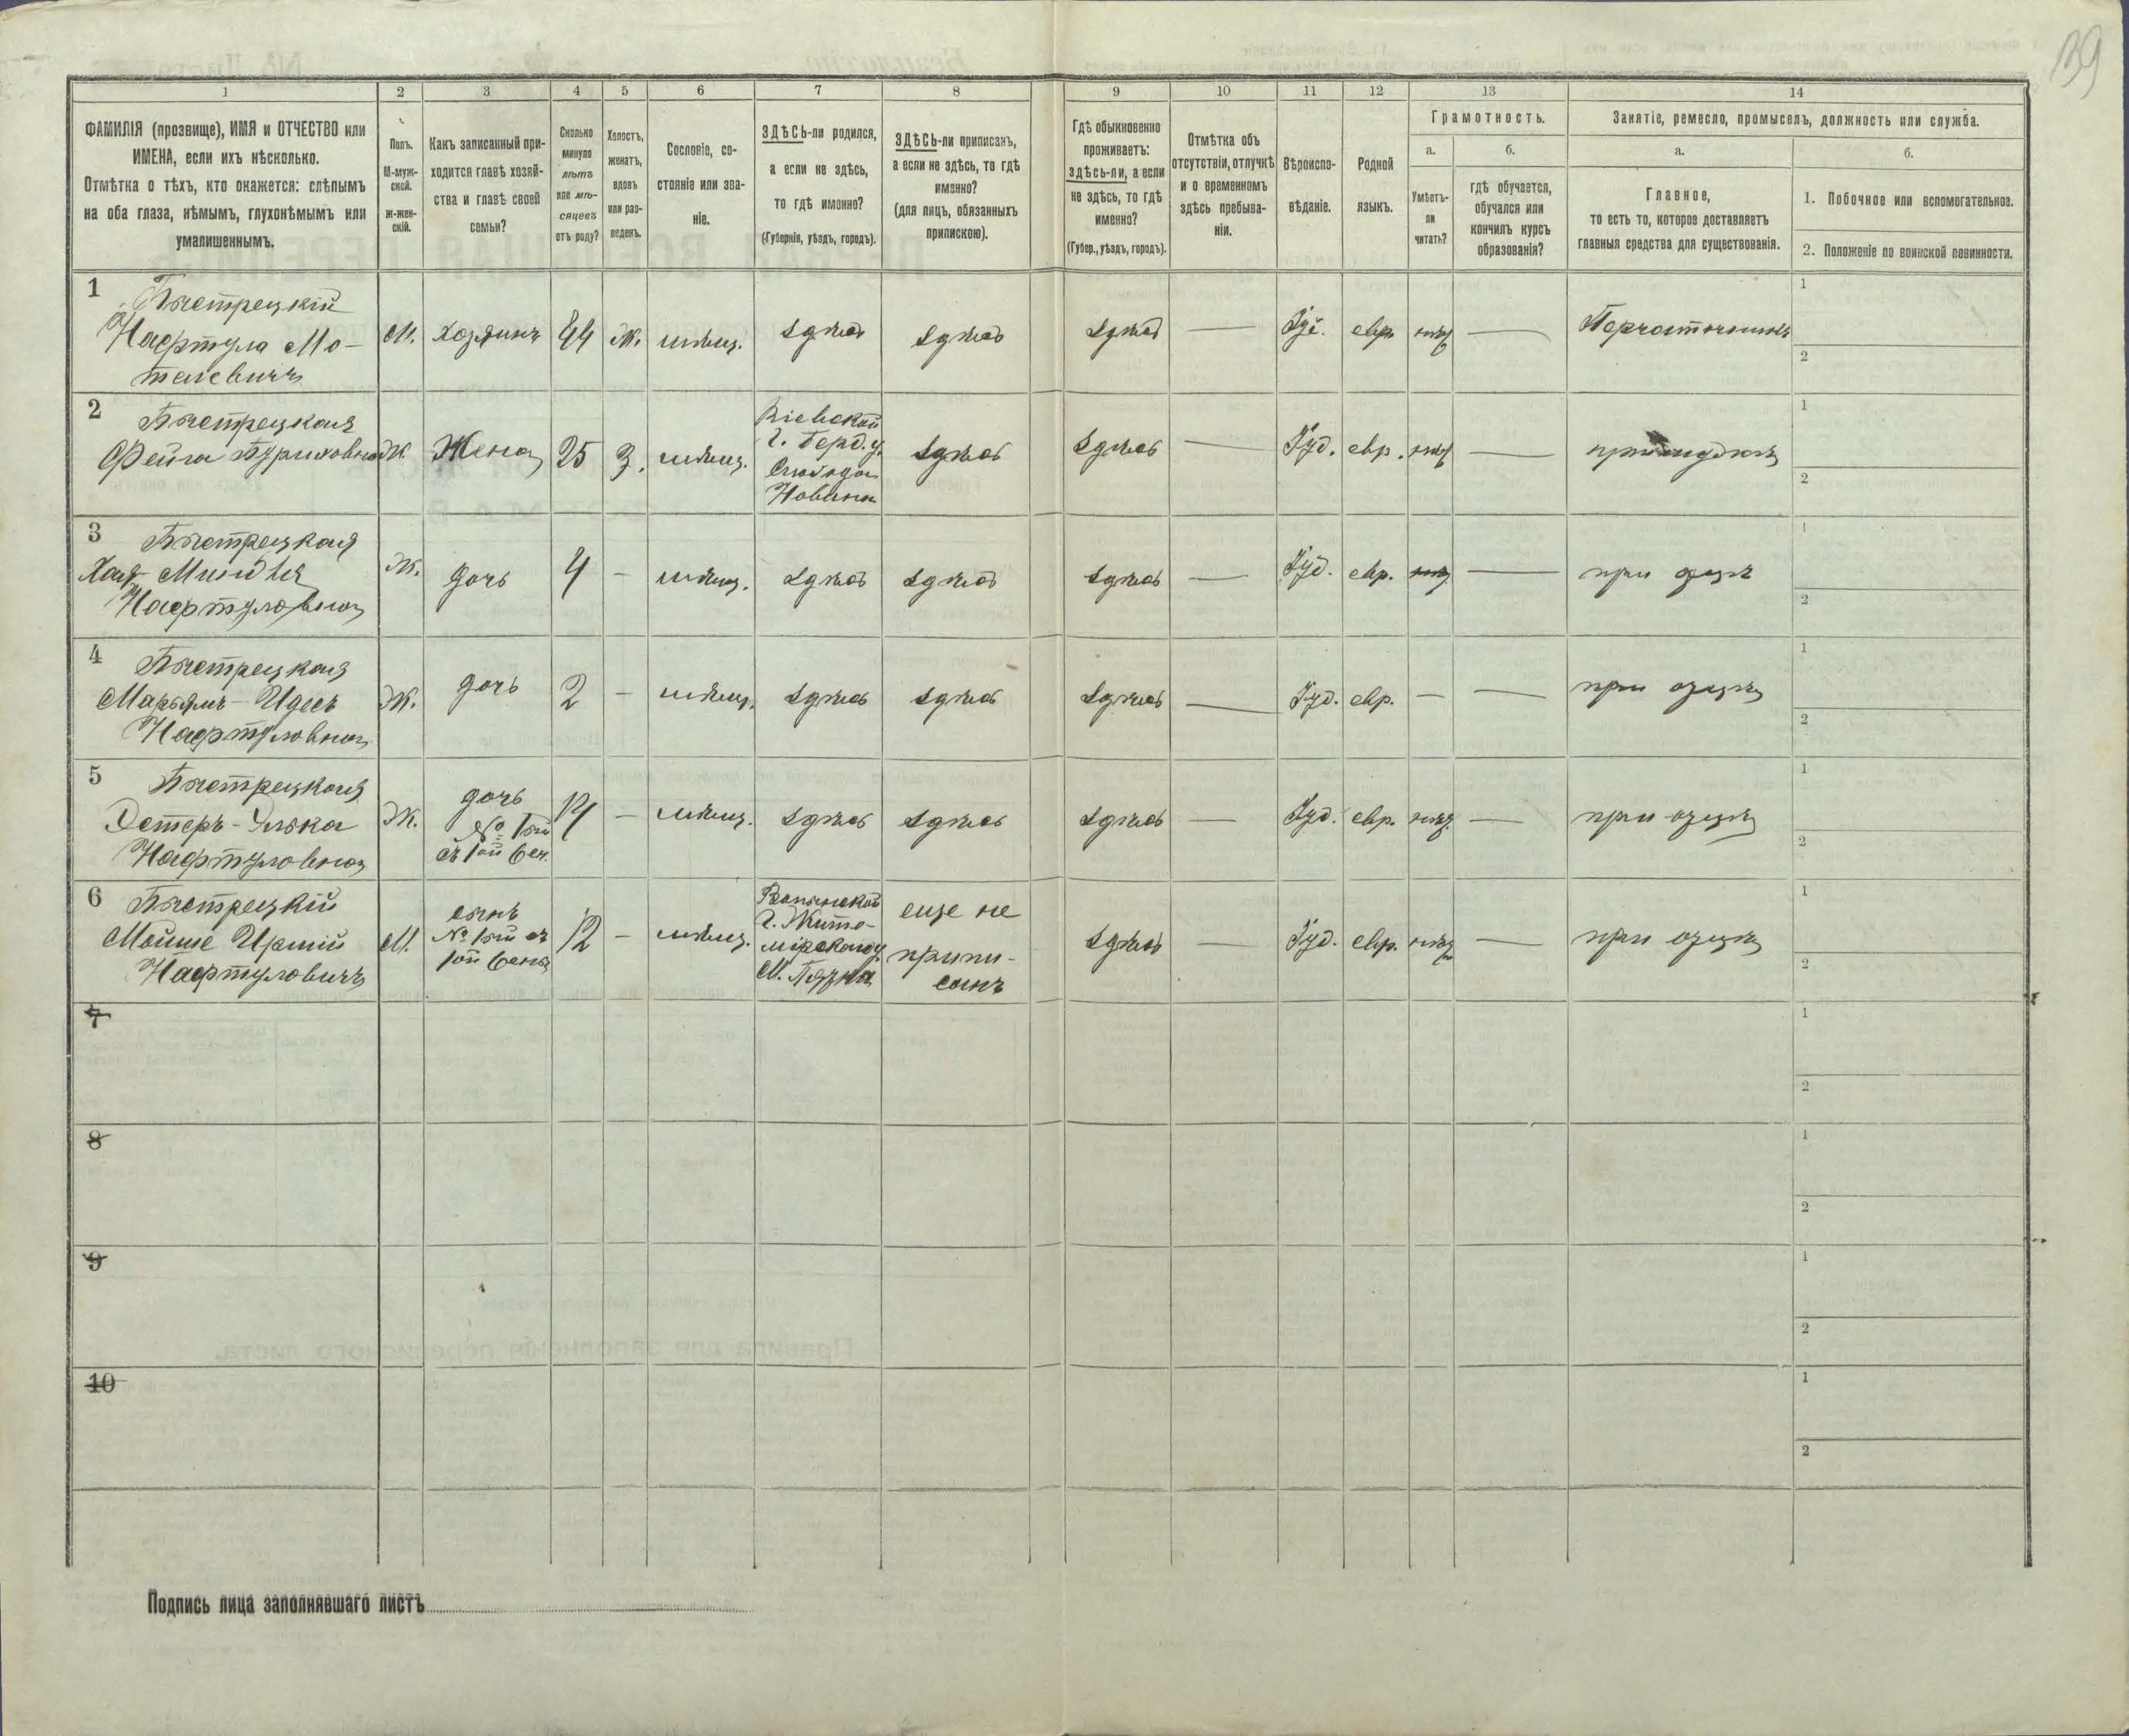 139
1
2
3
4
5
6
7
8
9
10
11
12
13
14
ФАМИЛІЯ (прозвище), ИМЯ и ОТЧЕСТВО или
ИМЕНА, если ихъ нѣсколько.
Отмѣтка о тѣхъ, кто окажется: слѣпымъ
на оба глаза, нѣмымъ, глухонѣмымъ или
умалишеннымъ.
Полъ.
М-муж-
ской.
ж-жен-
скій.
Какъ записанный при-
ходится главѣ хозяй-
ства и главѣ своей
семьи?
Сколько
минуло
лѣтъ
или мѣ-
сяцевъ
отъ роду?
Холостъ,
женатъ,
вдовъ
или раз-
веденъ.
Сословіе, со-
стояніе или зва-
ніе.
ЗДѢСЬ-ли родился,
а если не здѣсь,
то гдѣ именно?
(Губернія, уѣздъ, городъ).
ЗДѢСЬ-ли приписанъ,
а если не здѣсь, то гдѣ
именно?
(для лицъ, обязанныхъ
припискою).
Гдѣ обыкновенно
проживаетъ:
здѣсь-ли, а если
не здѣсь, то гдѣ
именно?
(Губер., уѣздъ, городъ).
Отмѣтка объ
отсутствіи, отлучкѣ
и о временномъ
здѣсь пребыва-
ніи.
Вѣроиспо-
вѣданіе.
Родной
языкъ.
Грамотность.
а.
Умѣетъ-
ли
читать?
б.
гдѣ обучается,
обучался или
кончилъ курсъ
образованія?
Занятіе, ремесло, промыселъ, должность или служба.
а.
Главное,
то есть то, которое доставляетъ
главныя средства для существованія.
б.
1. Побочное или вспомогательное.
2. Положеніе по воинской повинности.
1
Быстрецкій
Нафтула Мо-
телевичъ
М.
хозяинъ
44
Ж.
мѣщ.
здѣсь
здѣсь
здѣсь
—
Іуд.
евр.
—
Перчаточникъ
1
2
2
Быстрецкая
Фейга
Ж
Жена
25
З.
мѣщ.
Кіевской
г. Берд. у.
Слобода
здѣсь
здѣсь
—
Іуд.
евр.
—
1
2
3
Быстрецкая
Хая-Миндля
Нафтуловна
Ж.
дочь
4
—
мѣщ.
здѣсь
здѣсь
здѣсь
—
Іуд.
евр.
—
при отцѣ
1
2
4
Быстрецкая
Марьямъ-Идесъ
Нафтуловна
Ж.
дочь
2
—
мѣщ.
здѣсь
здѣсь
здѣсь
—
Іуд.
евр.
—
—
при отцѣ
1
2
5
Быстрецкая
Эстеръ-Элька
Нафтуловна
Ж.
дочь
№ 1ый
съ 1ой
14
—
мѣщ.
здѣсь
здѣсь
здѣсь
—
Іуд.
евр.
—
при отцѣ
1
2
6
Быстрецкій
Мойше
Нафтуловичъ
М.
сынъ
№ 1ый съ
1ой
12
—
мѣщ.
Волынской
г. Жито-
мірскаго у.
еще не
припи-
санъ
здѣсь
—
Іуд.
евр.
—
при отцѣ
1
2
7
1
2
8
1
2
9
1
2
10
1
2
Подпись лица заполнявшаго листъ